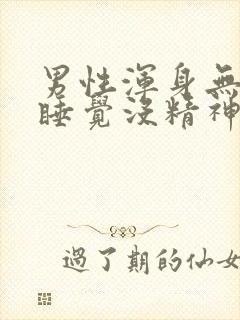 男性渾身無
睡覺沒精神
過了期的仙女